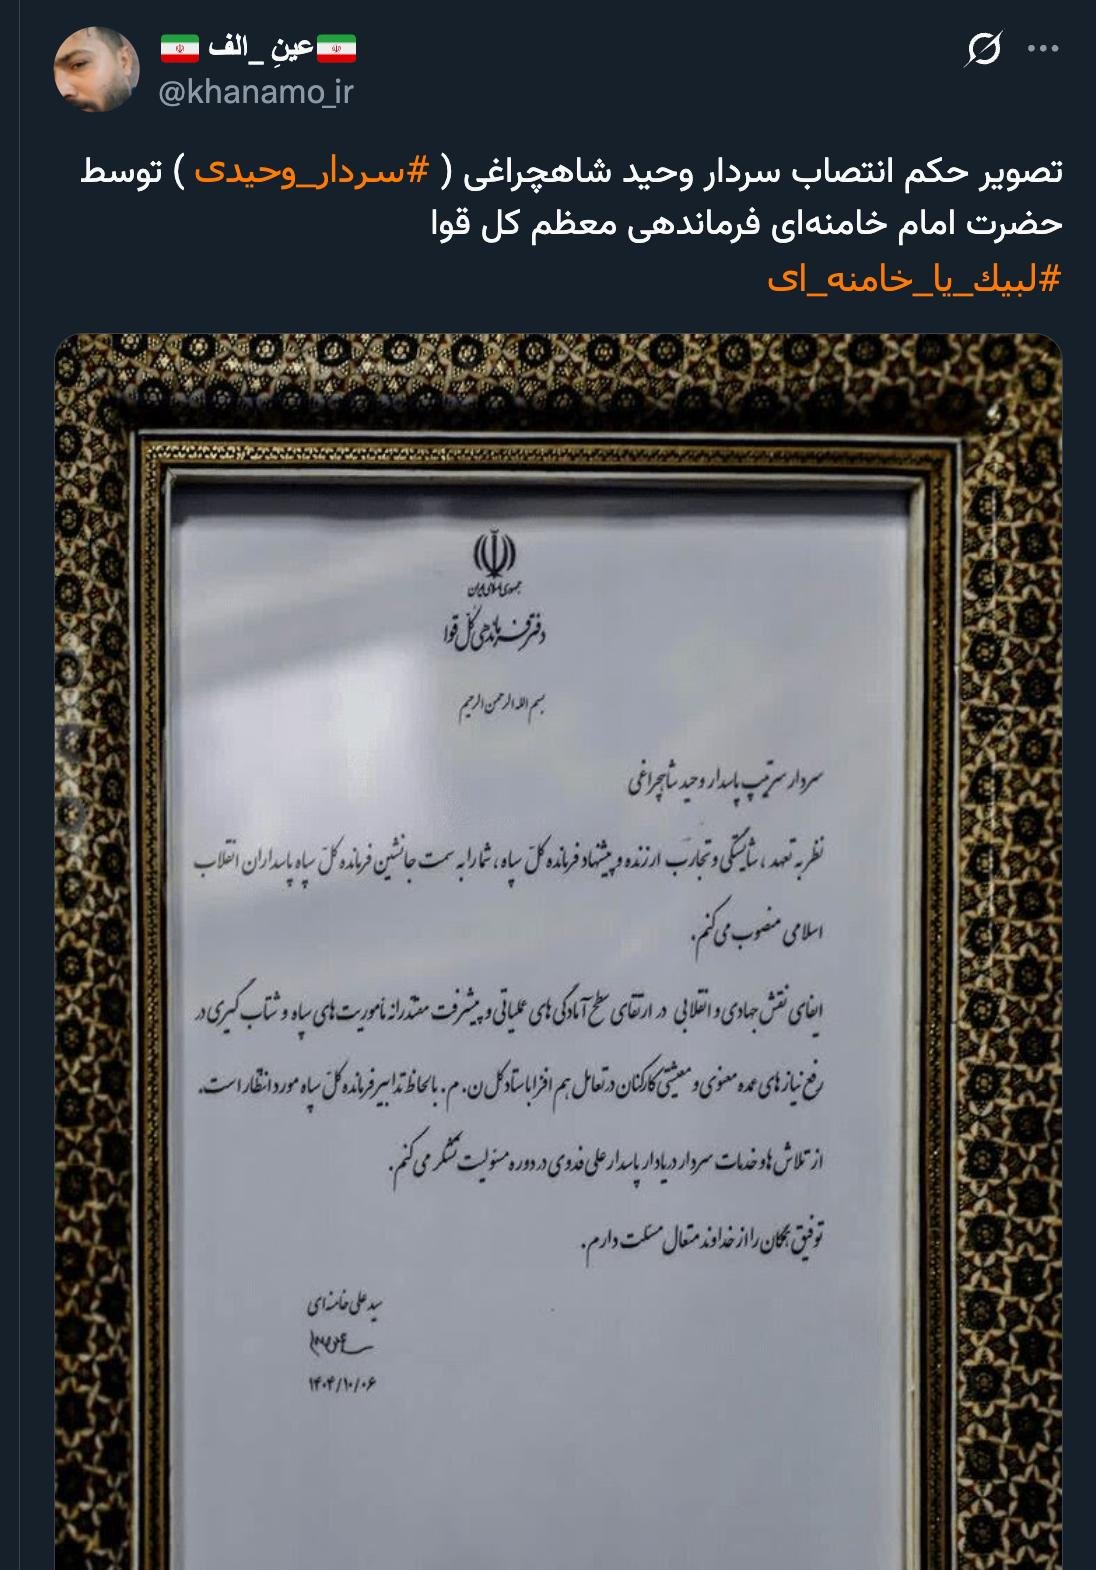 عینِ _الف
@khanamo_ir
تصویر حکم انتصاب سردار وحید شاهچراغی ( #سردار_وحیدی ) توسط
حضرت امام خامنه‌ای فرماندهی معظم کل قوا
#لبيك_یا_خامنه_ای
جمهوری اسلامی ایران
دفتر فرماندهی کل قوا
بسم الله الرحمن الرحیم
سردار سرتیپ پاسدار وحید شاهچراغی
نظر به تعهد، شایستگی و تجارب ارزنده و پیشنهاد فرمانده کلّ سپاه، شما را به سمت جانشین فرمانده کلّ سپاه پاسداران انقلاب
اسلامی منصوب می‌کنم.
ایفای نقش جهادی و انقلابی در ارتقای سطح آمادگی‌های عملیاتی و پیشرفت مقتدرانه مأموریت‌های سپاه و شتاب گیری در
رفع نیازهای عمده معنوی و معیشتی کارکنان در تعامل هم افزا با ستاد کل ن. م. با لحاظ تدابیر فرمانده کلّ سپاه مورد انتظار است.
از تلاش‌ها و خدمات سردار دریادار پاسدار علی فدوی در دوره مسئولیت تشکر می‌کنم.
توفیق همگان را از خداوند متعال مسئلت دارم.
سید علی خامنه‌ای
۱۴۰۴/۱۰/۰۶